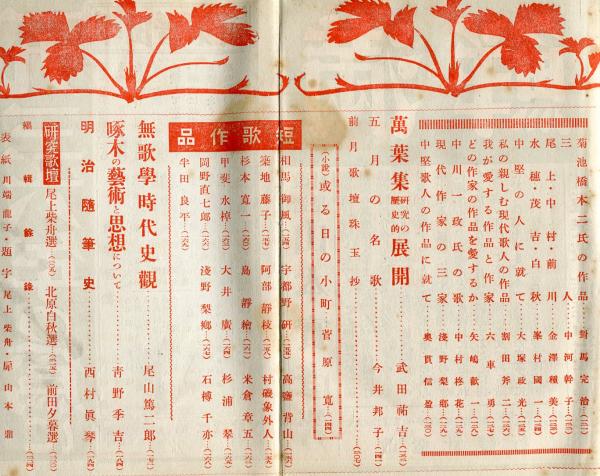 菊池橋本二氏の作品 對馬完治
三人 中河幹子
尾上・中村・前川 金澤種美
水穗・茂吉・白秋 峯村國一
中堅の人に就て 大塚政光
私の親しむ現代歌人の作品 割田斧二
我が愛する作品と作家 六車勇
どの作家の作品を愛するか 矢嶋歡一
中川一政氏の歌 中村柊花
現代作家の三家 淺野梨郷
中堅歌人の作品に就て 奥貫信盈
萬葉集研究の歷史的展開 武田祐吉
五月の名歌 今井邦子
前月歌壇珠玉抄
(小說)或る日の小町 菅原寬
短歌作品
相馬御風 宇都野研 高鹽背山
築地藤子 阿部靜枝 村磯象外人
杉本寬一 島靜 米倉章五
甲斐水棹 大井廣 杉浦翠
岡野直七郎 淺野梨郷 石榑千亦
半田良平
無歌學時代史觀 尾山篤二郎
啄木の藝術と思想について 青野季吉
明治隨筆史 西村眞琴
研究歌壇 尾上柴舟選 北原白秋選 前田夕暮選
編輯餘錄
表紙 川端龍子・題字 尾上柴舟・扉 山本鼎